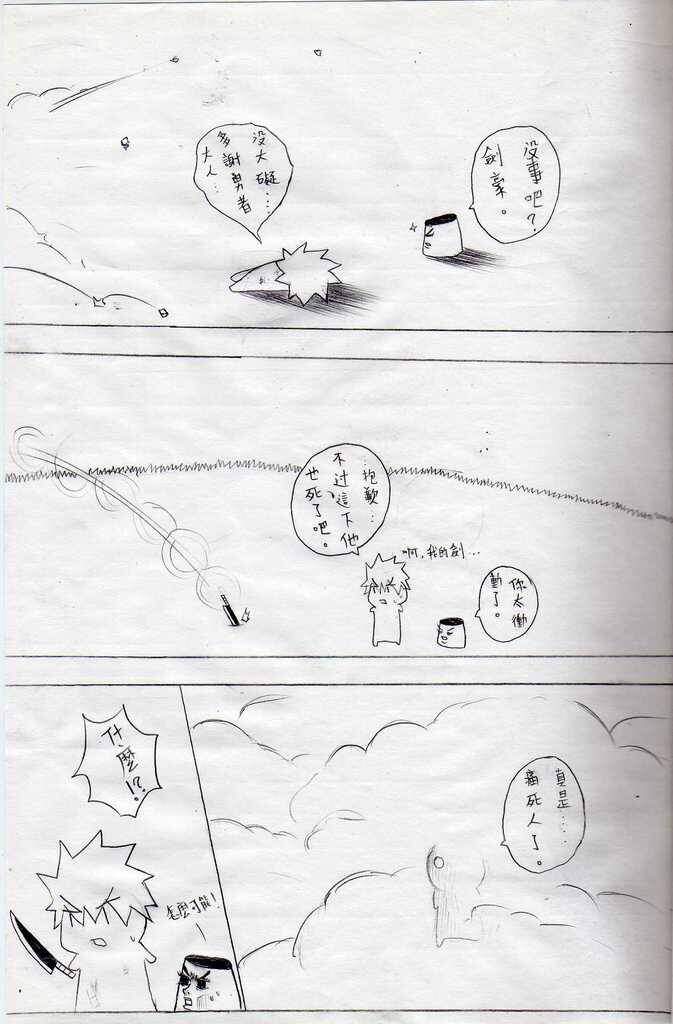 没事吧?
劍豪。
没大礙…
多謝勇者
大人…
抱歉…
不过這下他
也死了吧。
啊,我的劍…
你太衝
動了。
真是……
痛死人了。
什麼!?
怎麼可能!